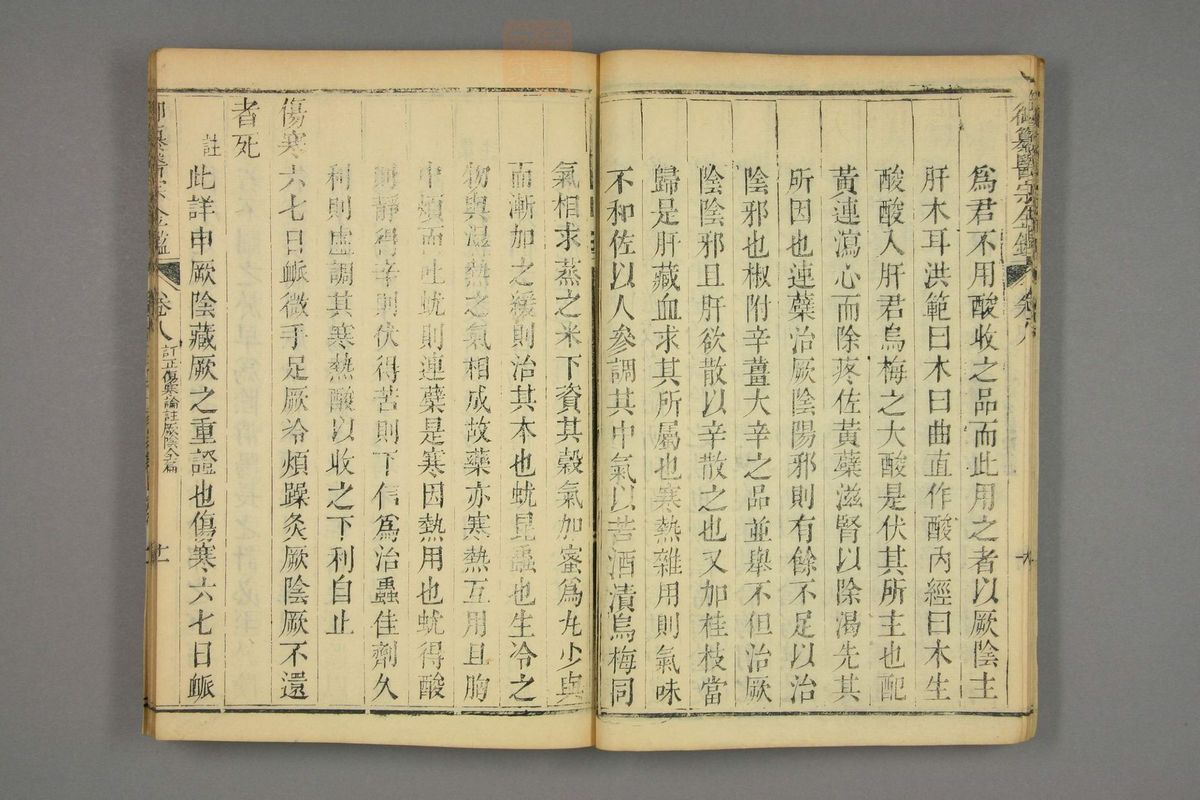 御纂醫宗金鑑 卷八
為君不用酸收之品而此用之者以厥陰主
肝木耳洪範曰木曰曲直作酸內經曰木生
酸酸入肝君烏梅之大酸是伏其所主也配
黃連瀉心而除疼佐黃蘗滋腎以除渴先其
所因也連蘗治厥陰陽邪則有餘不足以治
陰邪也椒附辛薑大辛之品並舉不但治厥
陰陰邪且肝欲散以辛散之也又加桂枝當
歸是肝藏血求其所屬也寒熱雜用則氣味
不和佐以人參調其中氣以苦酒漬烏梅同
氣相求蒸之米下資其穀氣加蜜為丸少與
而漸加之緩則治其本也蚘昆蟲也生冷之
物與濕熱之氣相成故藥亦寒熱互用且胸
中煩而吐蚘則連蘗是寒因熱用也蚘得酸
則靜得辛則伏得苦則下信為治蟲佳劑久
利則虛調其寒熱酸以收之下利自止
傷寒六七日脈微手足厥冷煩躁灸厥陰厥不還
者死
註 此詳申厥陰藏厥之重證也傷寒六七日脈
御纂醫宗金鑑 卷八 訂正傷寒論註厥陰全篇 十